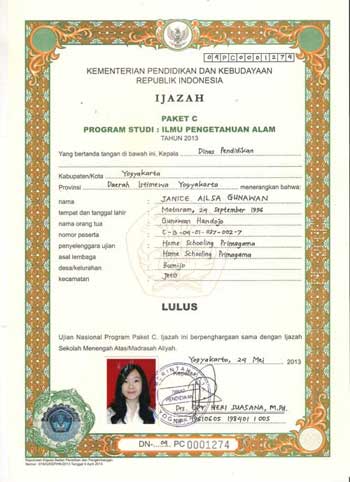 04PC0001274
KEMENTERIAN PENDIDIKAN DAN KEBUDAYAAN
REPUBLIK INDONESIA
IJAZAH
PAKET C
PROGRAM STUDI : ILMU PENGETAHUAN ALAM
TAHUN 2013
Yang bertanda tangan di bawah ini, Kepala Dinas Pendidikan
Kabupaten/Kota : Yogyakarta
Provinsi : Daerah Istimewa Yogyakarta menerangkan bahwa:
nama : JANICE AILSA GUNAWAN
tempat dan tanggal lahir : Mataram, 29 September 1996
nama orang tua : Gunawan Handojo
nomor peserta : C-13-04-01-037-002-7
penyelenggara ujian : Home Schooling Primagama
asal lembaga : Home Schooling Primagama
desa/kelurahan : Bumijo
kecamatan : Jetis
LULUS
Ujian Nasional Program Paket C. Ijazah ini berpenghargaan sama dengan Ijazah
Sekolah Menengah Atas/Madrasah Aliyah.
Yogyakarta, 24 Mei 2013
Kepala
DINAS
PENDIDIKAN
HERI SUASANA, M.Pd.
198401 1 005
DN-04 PC 0001274